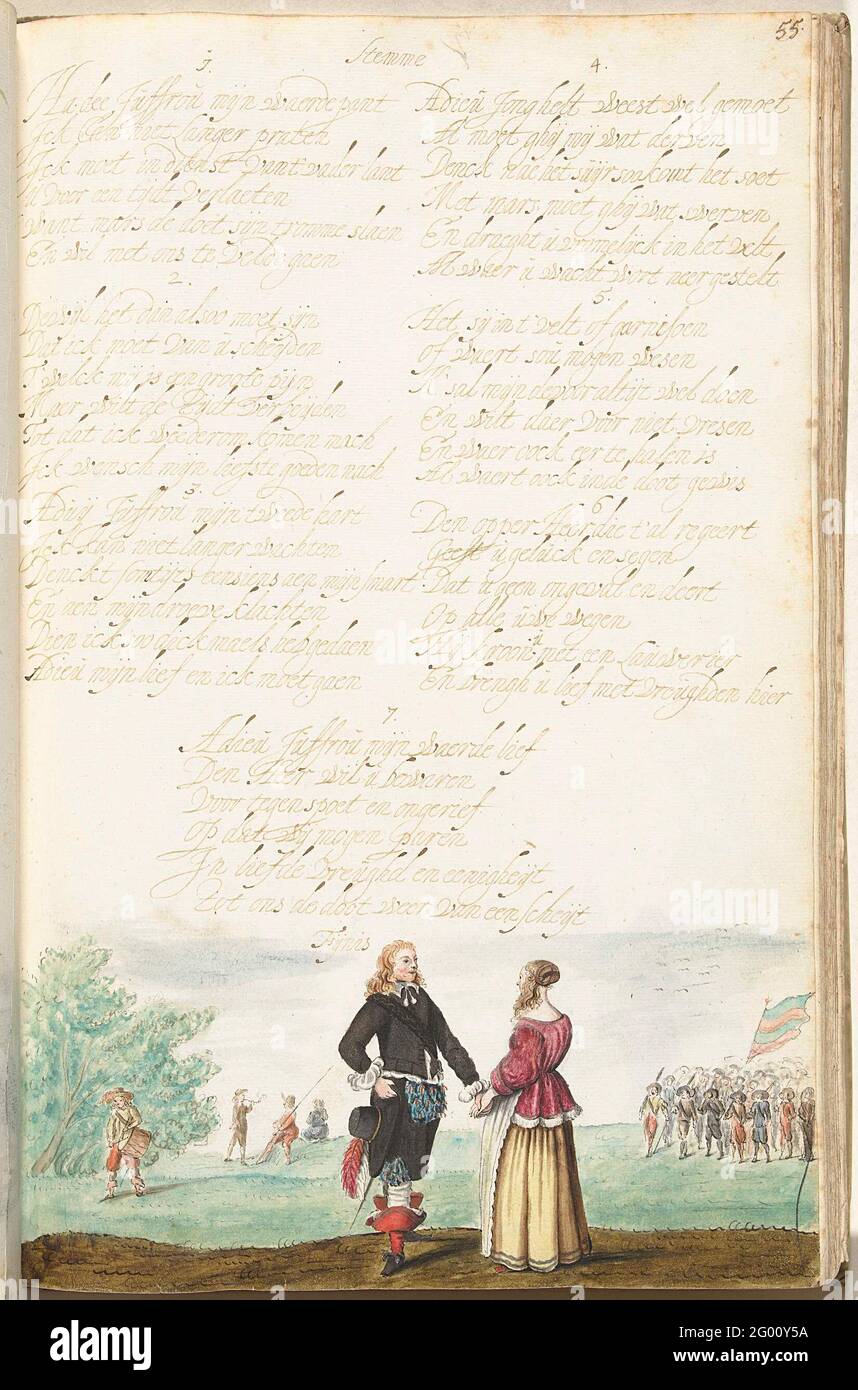 55
Stemme
1.
Ha dee Juffroü mijn waerde pant
Ick kan niet langer praten
Ick moet in dienst vant vader lant
ü voor een tijdt verlaeten
want mars de doet sijn tromme slaen
En wil met ons te velde gaen
2.
Dewijl het dan alsoo moet sijn
Dat ick moet van ü scheijden
T welck mij is een groote pijn
Maer wilt de tijdt verbeijden
Tot dat ick wederom komen mach
Ick wensch mijn liefste goeden nach
3.
Adieü Jüffroü mijn twede hart
Ick kan niet langer wachten
Denckt somtijts eens aen mijn smart
En aen mijn droeve klachten
Dien ick so dickmaels heb gedaen
Adieü mijn lief en ick moet gaen
4.
Adieü Jonghelt weest wel gemoet
Al moet ghij mij wat derven
Denck na het süijr soo komt het soet
Met mars moet ghij wat swerven
En draeght ü vromelijck in het velt
Al waer ü wacht wort neer gestelt
5.
Het sij int velt of garnisoen
of waert soü mogen wesen
K sal mijn devoor altijt wel doen
En wilt daer voor niet vresen
En waer oock eer te halen is
Al waert oock inde doot gewis
6
Den opper Heer die t'al regeert
Geeft ü gelück en segen
Dat ü geen ongeval en deert
Op alle üwe wegen
kroon ü met een Lauwerier
En brengh ü lief met vreüghden hier
7.
Adieü Jüffroü mijn waerde lief
Den Heer wil ü bewaren
Voor tegenspoet en ongerief
Op dat wij mogen paren
In liefde vreüghd en eenigheijt
Tot ons de doot weer van een scheijt
Finis
alamy
alamy
Image ID: 2G00Y5A
www.alamy.com